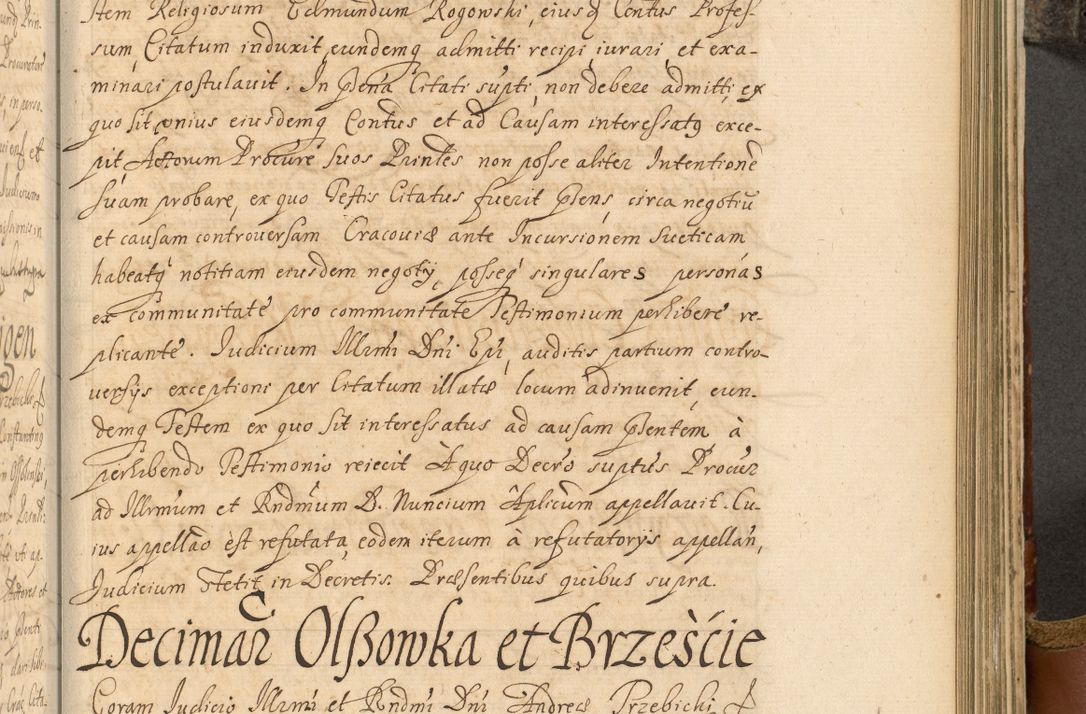 Item Religiosum Edmundum Rogowski, eiusdē Contus Profes-
sum, Citatum induxit, eundemq admitti recipi, iurari, et exa-
minari postulavit. In pñtia Citati supti, non debere admitti, ex
quo sit unius eiusdemq Contus et ad Causam interessatq exce-
pit, Actorum Procure suos Printes non posse aliter Intentione
suam probare, ex quo Testis Citatus fuerit pñens, circa negotiū
et causam controversam Cracoviæ ante Incursionem Sueticam
habeatq notitiam eiusdem negotij, posseq singulares personas
ex communitate pro communitate Testimonium perhibere re-
plicante. Judicium Illrmi Dni Epi, auditis partium contro-
versijs exceptioni per Citatum illatæ, locum adinvenit, eun-
demq Testem ex quo sit interessatus ad causam pñentem, à
perhibendo Testimonio reiecit Aquo Decro suptus Procur
ad Illrmum et Rndmum D. Nuncium Aplicum appellavit. Cu-
ius appellao est refutata, eodem iterum à refutatorijs appellañ,
Judicium stetit in Decretis. Præsentibus quibus supra.
Decimar Olßowka et Brzeście
Coram Judicio Illrmi et Rndmi Dni Andreæ Trzebicki